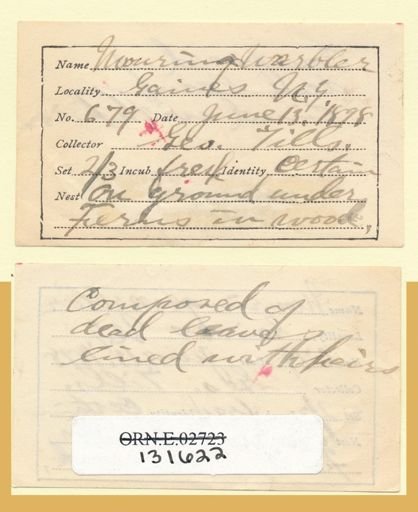 Name Mouring Warbler
Locality Gaines N.Y.
No. 679 Date June 13, 1898
Collector Geo. Tills.
Set 2/3 Incub fresh Identity Certain
Nest On ground under
Ferns in wood,
Composed of
dead leaves
lined with hairs
ORN.E.02723
131622